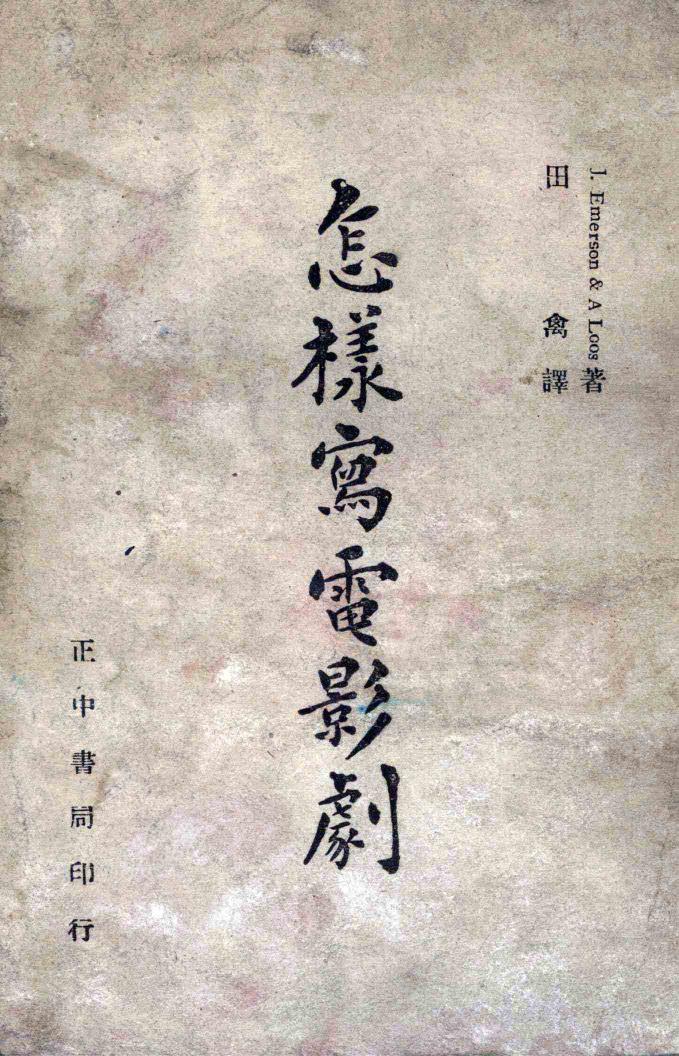 J. Emerson & A Loos 著
田禽譯
怎樣寫電影劇
正中書局印行